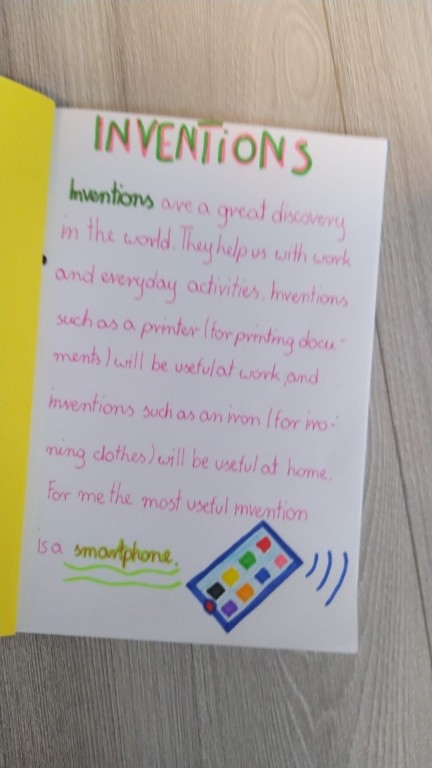 INVENTIONS
Inventions are a great discovery
in the world. They help us with work
and everyday activities. Inventions
such as a printer (for printing docu-
ments) will be useful at work, and
inventions such as an iron (for iro-
ning clothes) will be useful at home.
For me the most useful invention
is a smartphone.